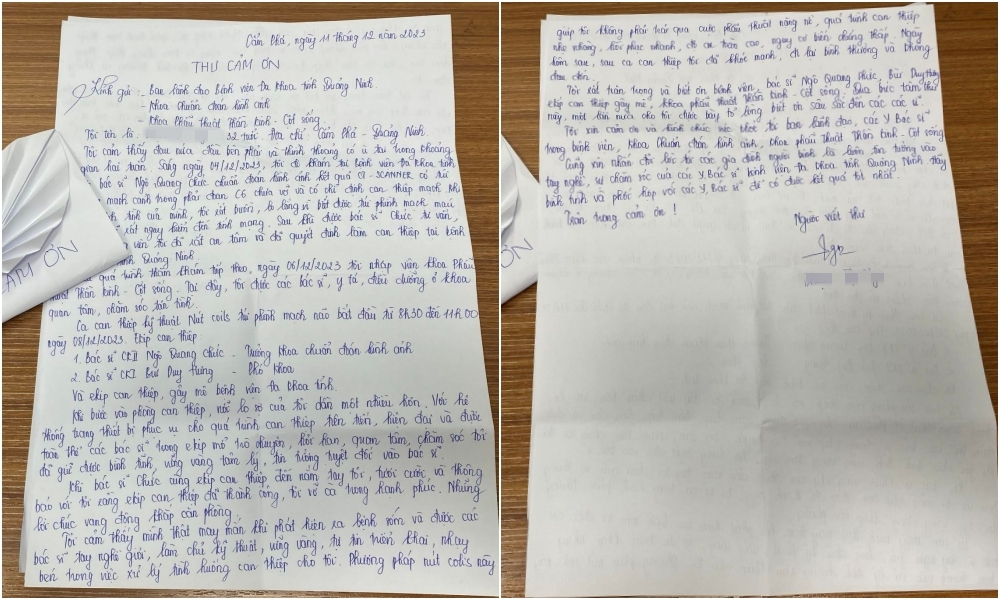 Cẩm Phả, ngày 11 tháng 12 năm 2023
THƯ CẢM ƠN
Kính gửi: - Ban lãnh đạo Bệnh viện Đa khoa tỉnh Quảng Ninh.
- Khoa Chuẩn đoán hình ảnh
- Khoa Phẫu thuật Thần kinh - Cột sống.
Tôi tên là 32 tuổi Địa chỉ: Cẩm Phả - Quảng Ninh.
Tôi cảm thấy đau nửa đầu bên phải và thỉnh thoảng có ù tai trong khoảng
gian hai năm. Sáng ngày 04/12/2023, tôi đi khám tại bệnh viện Đa khoa tỉnh
bác sĩ Ngô Quang Chức chuẩn đoán hình ảnh kết quả CT-SCANNER có túi
mạch cảnh trong phải đoạn C6 chưa vỡ và có chỉ định can thiệp mạch khi
tình của mình, tôi rất buồn, lo lắng vì biết được túi phình mạch máu
rất nguy hiểm đến tính mạng. Sau khi được bác sĩ Chức tư vấn,
viên tôi đã rất an tâm và đã quyết định làm can thiệp tại bệnh
tỉnh Quảng Ninh.
quá trình thăm khám tiếp theo, ngày 06/12/2023 tôi nhập viện khoa Phẫu
thuật Thần kinh - Cột sống. Tại đây, tôi được các bác sĩ, y tá, điều dưỡng ở khoa
quan tâm, chăm sóc tận tình.
Ca can thiệp kỹ thuật Nút coils túi phình mạch não bắt đầu từ 8h30 đến 11h00
ngày 08/12/2023. Ekip can thiệp
1. Bác sĩ CKII Ngô Quang Chức - Trưởng khoa chuẩn đoán hình ảnh
2. Bác sĩ CKI Bùi Duy Hưng - Phó khoa
Và ekip can thiệp, gây mê bệnh viện đa khoa tỉnh.
Khi bước vào phòng can thiệp, nỗi lo sợ của tôi dần một nhiều hơn. Với hệ
thống trang thiết bị phục vụ cho quá trình can thiệp tiên tiến, hiện đại và được
toàn thể các bác sĩ trong ekip mổ trò chuyện, hỏi han, quan tâm, chăm sóc tôi
đã giữ được bình tĩnh, vững vàng tâm lý, tin tưởng tuyệt đối vào bác sĩ.
Khi bác sĩ Chức cùng ekip can thiệp đến nắm tay tôi, tươi cười và thông
báo với tôi rằng ekip can thiệp đã thành công, tôi vỡ òa trong hạnh phúc. Những
lời chúc vang động khắp căn phòng.
Tôi cảm thấy mình thật may mắn khi phát hiện ra bệnh sớm và được các
bác sĩ tay nghề giỏi, làm chủ kỹ thuật, vững vàng, tự tin triển khai, nhạy
bén trong việc xử lý tình huống can thiệp cho tôi. Phương pháp nút coils này
CẢM ƠN
giúp tôi không phải trải qua cuộc phẫu thuật nặng nề, quá trình can thiệp
nhẹ nhàng, hồi phục nhanh, độ an toàn cao, nguy cơ biến chứng thấp. Ngày
hôm sau, sau ca can thiệp tôi đã khỏe mạnh, đi lại bình thường và không
đau đớn.
Tôi rất trân trọng và biết ơn bệnh viện, bác sĩ Ngô Quang Chức, Bùi Duy Hưng,
ekip can thiệp gây mê, khoa phẫu thuật Thần kinh - Cột sống. Qua bức tâm thư
này, một lần nữa cho tôi được bày tỏ lòng biết ơn sâu sắc đến các bác sĩ.
Tôi xin cảm ơn và kính chúc sức khỏe tới ban lãnh đạo, các Y, Bác sĩ
trong bệnh viện, khoa Chuẩn đoán hình ảnh, khoa phẫu Thuật Thần kinh - Cột sống.
Cũng xin nhắn đôi lời tới các gia đình người bệnh là luôn tin tưởng vào
tay nghề, sự chăm sóc của các Y, Bác sĩ bệnh viện Đa khoa tỉnh Quảng Ninh. Hãy
bình tĩnh và phối hợp với các Y, Bác sĩ để có được kết quả tốt nhất.
Trân trọng cảm ơn!
Người viết thư
ƠN